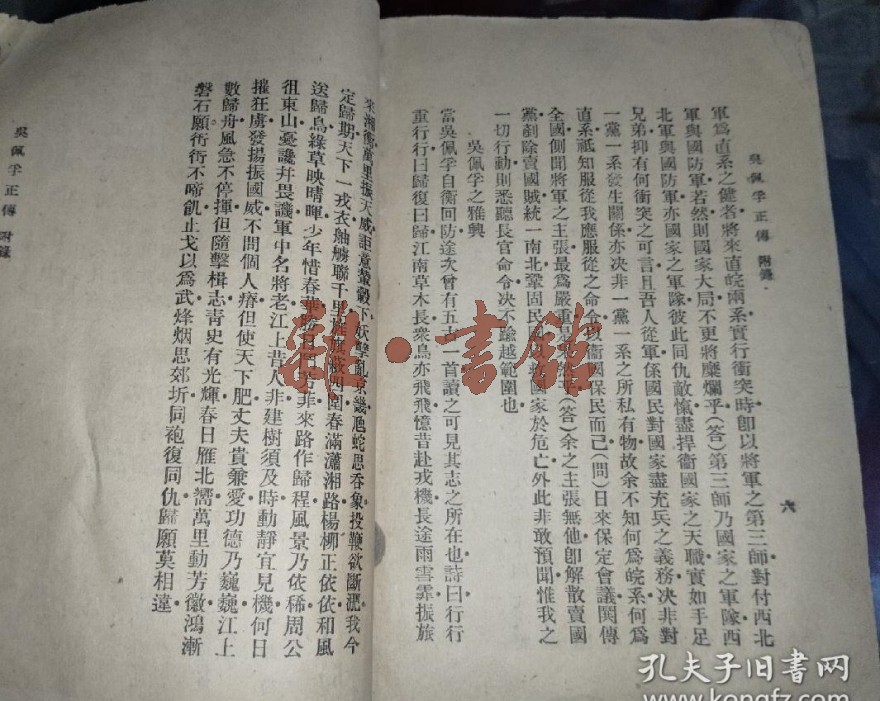 吳佩孚正傳 附錄
六
軍爲直系之健者將來直皖兩系實行衝突時卽以將軍之第三師對付西北
軍與國防軍若然則國家大局不更將糜爛乎(答)第三師乃國家之軍隊西
北軍與國防軍亦國家之軍隊彼此同仇敵愾盡捍衞國家之天職實如手足
兄弟抑有何衝突之可言且吾人從軍係國民對國家盡充兵之義務決非對
一黨一系發生關係亦決非一黨一系之所私有物故余不知何爲皖系何爲
直系祇知服從我應服從之命令以衞國保民而已(問)日來保定會議閱傳
全國側聞將軍之主張最爲嚴重是(答)余之主張無他卽解散賣國
黨剷除賣國賊統一南北鞏固民國以救國家於危亡外此非敢預聞惟我之
一切行動則悉聽長官命令決不踰越範圍也
吳佩孚之雅興
當吳佩孚自衡回防途次曾有五古一首讀之可見其志之所在也詩曰行行
重行行日歸復日歸江南草木長衆鳥亦飛飛憶昔赴戎機長途雨雪霏振旅
來湘衡萬里振天威詎意輦轂下妖孽亂京畿虺蛇思吞象投鞭欲斷淝我今
定歸期天下一戎衣舳艫聯千里旌旗蔽四圍春滿瀟湘路楊柳正依依和風
送歸鳥綠草映晴暉少年惜春華勝日非來路作歸程風景乃依稀周公
徂東山憂讒并畏譏軍中名將老江上昔人非建樹須及時動靜宜見機何日
摧狂虜發揚振國威不問個人瘠但使天下肥丈夫貴兼愛功德乃巍巍江上
數歸舟風急不停揮但隨擊楫志靑史有光輝春日雁北嚮萬里動芳徽鴻漸
磐石願衎衎不啼飢止戈以爲武烽烟思郊圻同袍復同仇歸願莫相違
吳佩孚正傳 附錄
雜·書館
孔夫子旧书网
www.kongfz.com